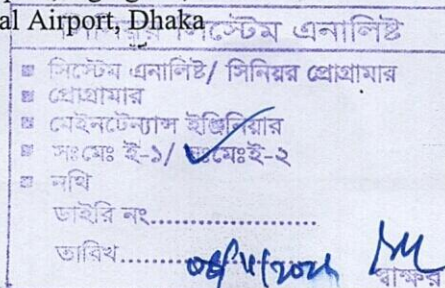 al Airport, Dhaka
সিস্টেম এনালিষ্ট
সিস্টেম এনালিষ্ট/ সিনিয়র প্রোগ্রামার
প্রোগ্রামার
মেইনটেন্যান্স ইঞ্জিনিয়ার
সঃমেঃ ই-১/ সঃমেঃই-২
নথি
ডাইরি নং....................
তারিখ..........
স্বাক্ষর